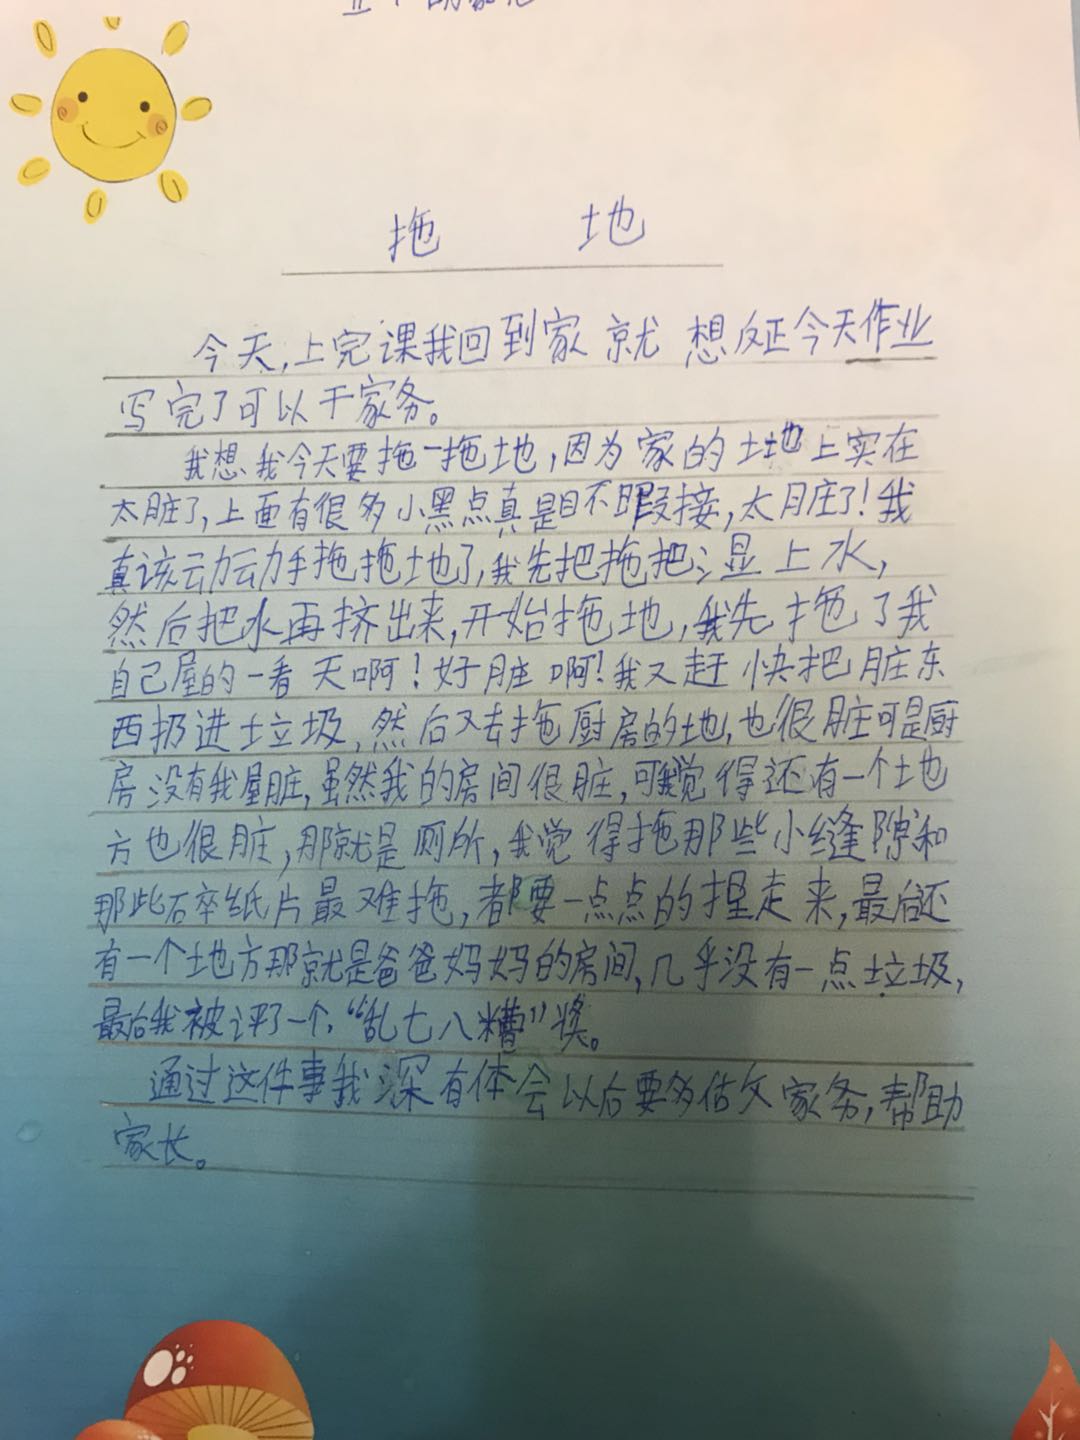 拖 地
今天,上完课我回到家就想反正今天作业
写完了可以干家务。
我想我今天要拖一拖地,因为家的土地上实在
太脏了,上面有很多小黑点真是目不暇接,太脏了!我
真该动动手拖拖地了,我先把拖把湿上水,
然后把水再挤出来,开始拖地,我先拖了我
自己屋的一看天啊!好脏啊!我又赶快把脏东
西扔进垃圾,然后又去拖厨房的地,也很脏可是厨
房没有我屋脏,虽然我的房间很脏,可我觉得还有一个地
方也很脏,那就是厕所,我觉得拖那些小缝隙和
那些碎纸片最难拖,都要一点点的捏走来,最后还
有一个地方那就是爸爸妈妈的房间,几乎没有一点垃圾,
最后我被评了一个,“乱七八糟”奖。
通过这件事我深有体会以后要多做家务,帮助
家长。